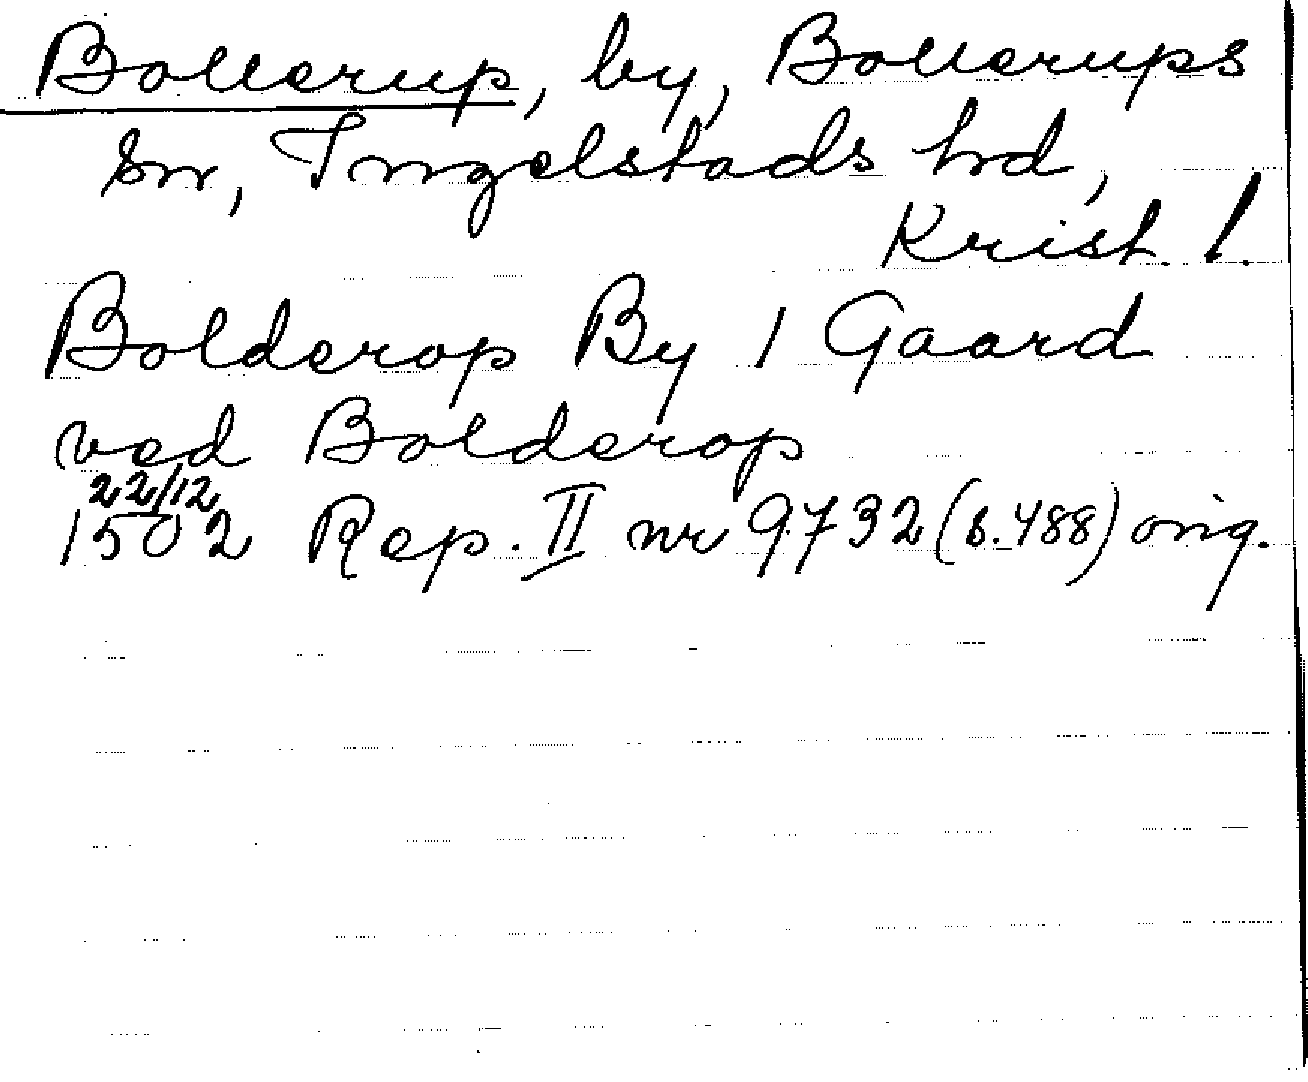 Bollerup, by, Bollerups
sn, Ingelstads hd,
Krist. l.
Bolderop By 1 Gaard
ved Bolderop
22/12
1502 Rep. II nr 9732 (s. 488) orig.